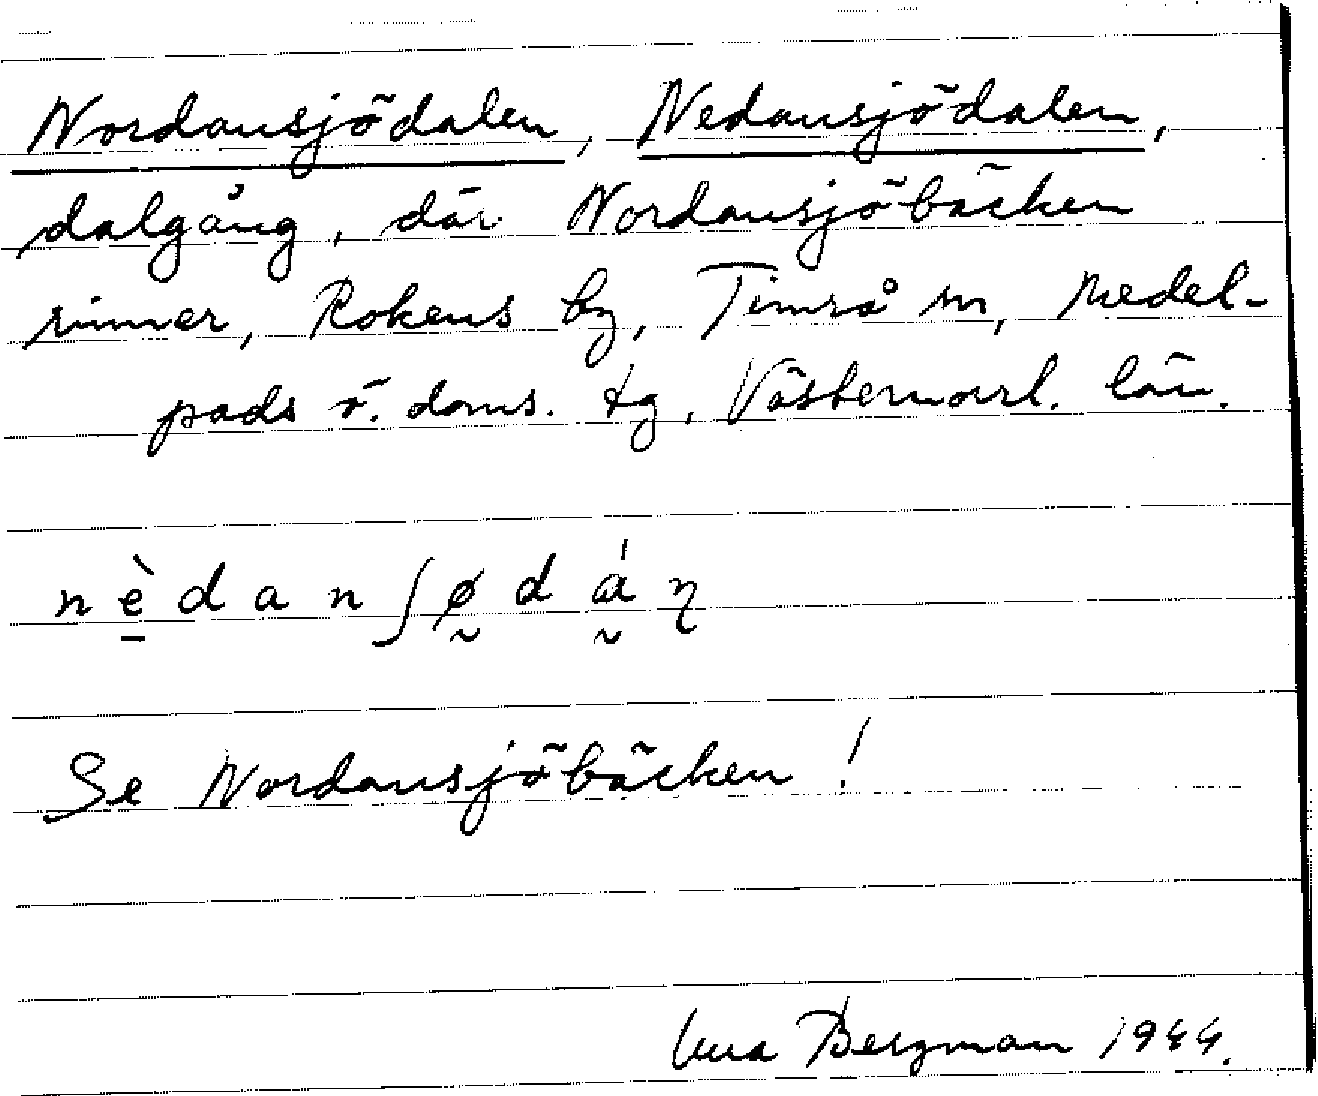 Nordansjödalen, Nedansjödalen,
dalgång, där Nordansjöbäcken
rinner, Rokens by, Timrå sn, Medel-
pads ö. doms. tg, Västernorrl. län.
nèdanʃødáɳ
Se Nordansjöbäcken!
Bergman 1944.